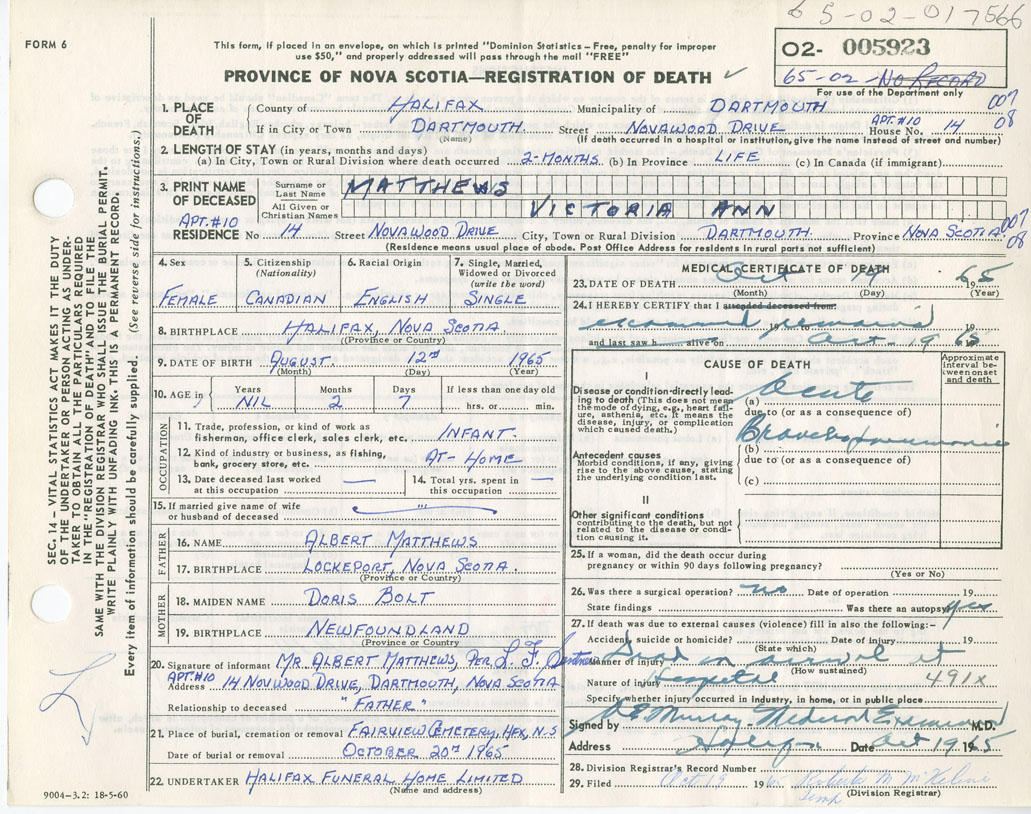 65-02-017566
FORM 6
This form, if placed in an envelope, on which is printed "Dominion Statistics – Free, penalty for improper
use $50," and properly addressed will pass through the mail "FREE"
PROVINCE OF NOVA SCOTIA—REGISTRATION OF DEATH ✓
02- 005923
65-02- NO RECORD
For use of the Department only
007
08
1. PLACE OF DEATH
County of HALIFAX Municipality of DARTMOUTH
If in City or Town DARTMOUTH. Street NOVAWOOD DRIVE APT.#10 House No. 14
(Name) (If death occurred in a hospital or institution, give the name instead of street and number)
2. LENGTH OF STAY (in years, months and days)
(a) In City, Town or Rural Division where death occurred 2-MONTHS. (b) In Province LIFE (c) In Canada (if immigrant)
3. PRINT NAME OF DECEASED
Surname or Last Name MATTHEWS
All Given or Christian Names VICTORIA ANN
APT.#10
RESIDENCE No 14 Street NOVAWOOD DRIVE City, Town or Rural Division DARTMOUTH. Province NOVA SCOTIA.
007
08
(Residence means usual place of abode. Post Office Address for residents in rural parts not sufficient)
SEC. 14 – VITAL STATISTICS ACT MAKES IT THE DUTY
OF THE UNDERTAKER OR PERSON ACTING AS UNDER-
TAKER TO OBTAIN ALL THE PARTICULARS REQUIRED
IN THE "REGISTRATION OF DEATH" AND TO FILE THE
SAME WITH THE DIVISION REGISTRAR WHO SHALL ISSUE THE BURIAL PERMIT.
WRITE PLAINLY WITH UNFADING INK. THIS IS A PERMANENT RECORD.
Every item of information should be carefully supplied. (See reverse side for instructions.)
4. Sex
FEMALE
5. Citizenship
(Nationality)
CANADIAN
6. Racial Origin
ENGLISH
7. Single, Married,
Widowed or Divorced
(write the word)
SINGLE
8. BIRTHPLACE HALIFAX, NOVA SCOTIA.
(Province or Country)
9. DATE OF BIRTH AUGUST. 12TH 1965
(Month) (Day) (Year)
10. AGE in Years Months Days If less than one day old
NIL 2 7 hrs. or min.
OCCUPATION
11. Trade, profession, or kind of work as
fisherman, office clerk, sales clerk, etc. INFANT.
12. Kind of industry or business, as fishing,
bank, grocery store, etc. AT-HOME
13. Date deceased last worked
at this occupation —
14. Total yrs. spent in
this occupation —
15. If married give name of wife
or husband of deceased "
FATHER
16. NAME ALBERT MATTHEWS
17. BIRTHPLACE LOCKEPORT, NOVA SCOTIA.
(Province or Country)
MOTHER
18. MAIDEN NAME DORIS BOLT
19. BIRTHPLACE NEWFOUNDLAND
(Province or Country)
20. Signature of informant MR. ALBERT MATTHEWS, PER. L. F.
APT.#10
Address 14 NOVWOOD DRIVE, DARTMOUTH, NOVA SCOTIA
Relationship to deceased "FATHER"
21. Place of burial, cremation or removal FAIRVIEW CEMETERY, HFX, N.S
Date of burial or removal OCTOBER 20TH 1965
22. UNDERTAKER HALIFAX FUNERAL HOME LIMITED
(Name and address)
9004-3.2: 18-5-60
MEDICAL CERTIFICATE OF DEATH
23. DATE OF DEATH Oct 19 1965
(Month) (Day) (Year)
24. I HEREBY CERTIFY that I attended deceased from:
examined remains 19
and last saw h alive on Oct 19 1965
CAUSE OF DEATH
Approximate interval between onset and death
I
Disease or condition directly leading to death (This does not mean
the mode of dying, e.g., heart failure, asthenia, etc. It means the
disease, injury, or complication
which caused death.)
(a) Acute
due to (or as a consequence of)
Bronchopneumonia
(b)
due to (or as a consequence of)
(c)
Antecedent causes
Morbid conditions, if any, giving
rise to the above cause, stating
the underlying condition last.
II
Other significant conditions
contributing to the death, but not
related to the disease or condition causing it.
25. If a woman, did the death occur during
pregnancy or within 90 days following pregnancy?
(Yes or No)
26. Was there a surgical operation? no Date of operation 19
State findings Was there an autopsy yes
27. If death was due to external causes (violence) fill in also the following:-
Accident, suicide or homicide? Date of injury 19
(State which)
Manner of injury Dead on arrival at
(How sustained)
Nature of injury Hospital 491X
Specify whether injury occurred in industry, in home, or in public place
Signed by Murray Medical Examiner M.D.
Address Halifax Date Oct 19 1965
28. Division Registrar's Record Number
29. Filed Oct 19 196
(Division Registrar)